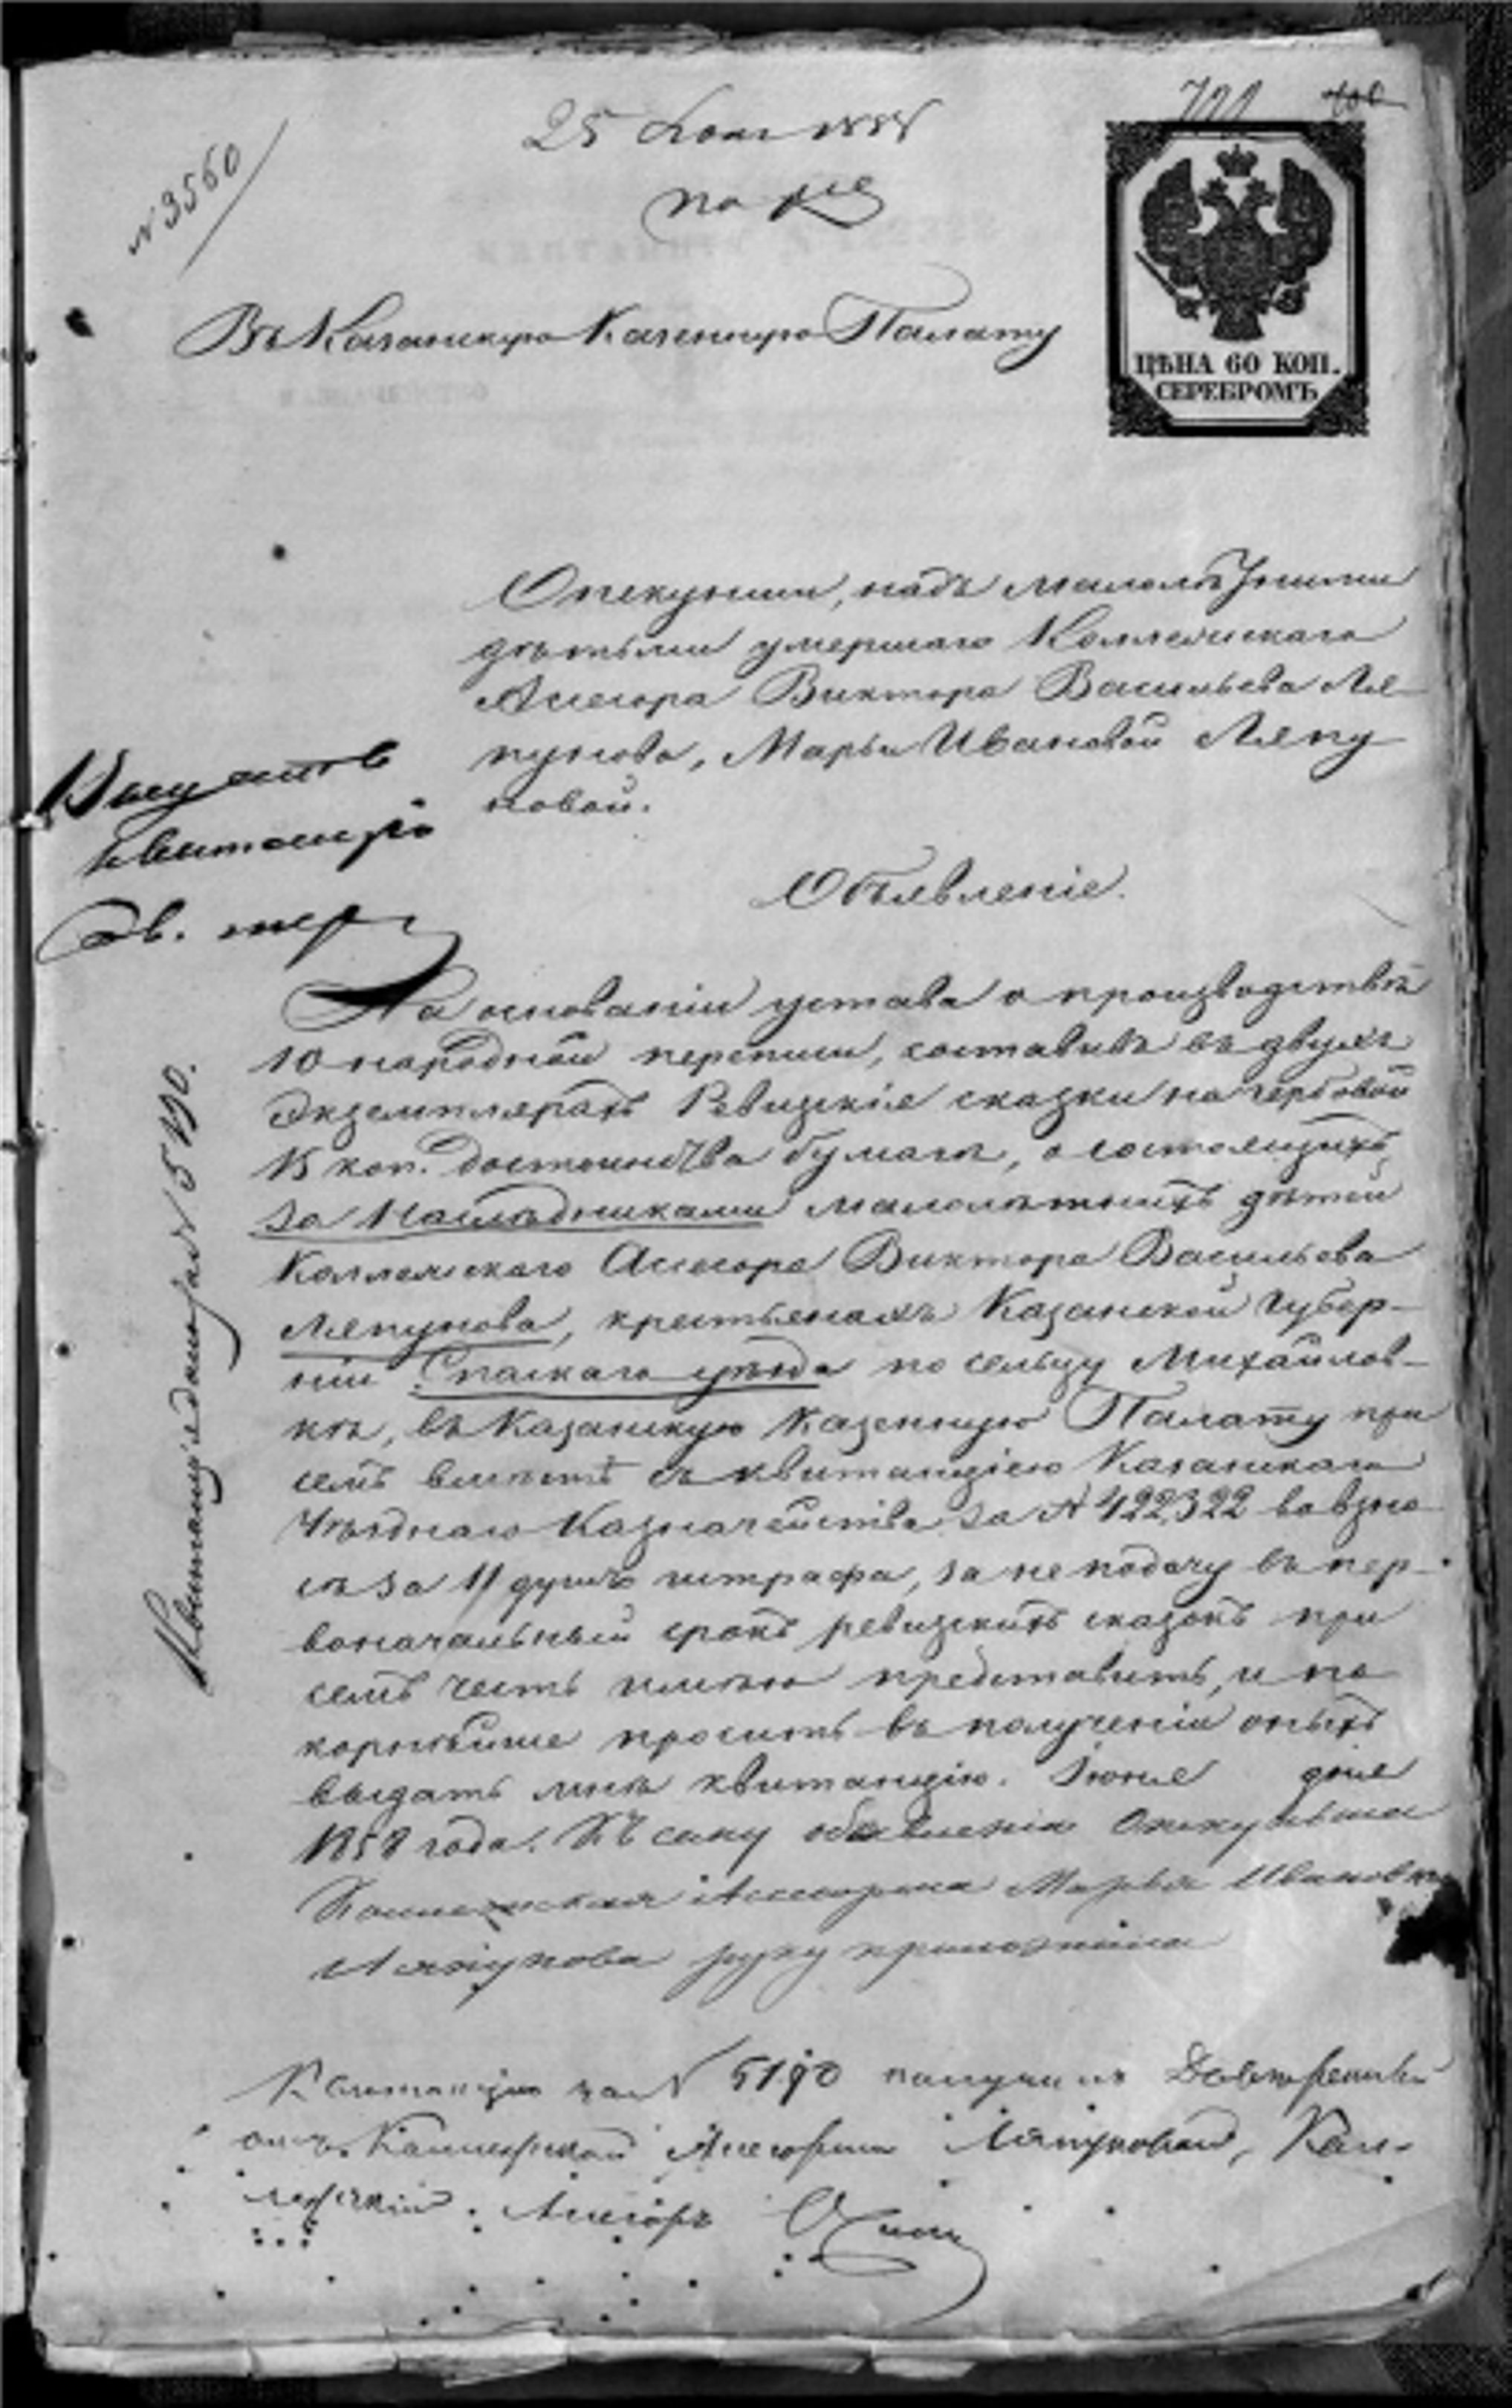 721
N 3560
25 Іюня 1858
Въ Казанскую Казенную Палату
ЦѢНА 60 КОП.
СЕРЕБРОМЪ
Опекунши, надъ малолѣтними
дѣтьми умершаго Коллежскаго
Асесора Виктора Васильева Ля-
пунова, Марьи Ивановой Ляпу
новой.
Выдать
квитанцію
Объявленіе.
На основаніи устава о производствѣ
10 народной переписи, составивъ въ двухъ
экземплярахъ Ревизскія сказки на гербовой
15 коп. достоинства бумагѣ, о состоящихъ
за Наслѣдниками малолѣтнихъ дѣтей
Коллежскаго Асесора Виктора Васильева
Ляпунова, крестьянахъ Казанской Губер-
ніи Спаскаго уѣзда по сельцу Михайлов-
кѣ, въ Казанскую Казенную Палату при
семъ вмѣстѣ съ квитанціею Казанскаго
Уѣзднаго Казначейства за N 422322 во взно
сѣ за 11 душъ штрафа, за не подачу въ пер-
воначальный срокъ ревизскихъ сказокъ при
семъ честь имѣю представить, и по
корнѣйше просить въ полученіи оныхъ
выдать мнѣ квитанцію. Іюня дня
1858 года. Къ сему объявленію Опекунша
Коллежская Асесорша Марья Ивановна
Ляпунова руку приложила
Квитанція дана за N 5190.
Квитанцію за N 5190 получилъ Довѣренный
отъ Коллежской Асесорши Ляпуновой, Кол-
лежскій Асесоръ